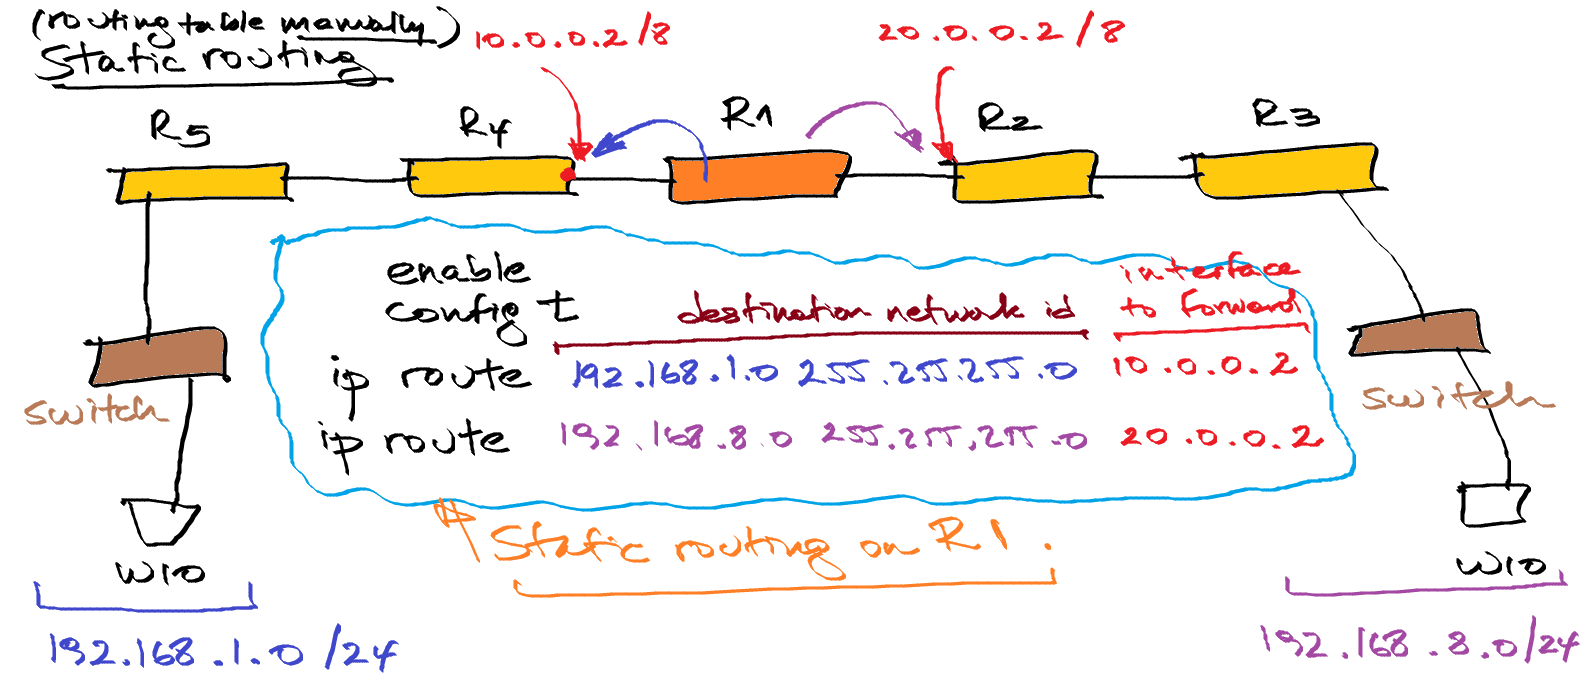 (routing table manually)
Static routing
10.0.0.2/8
20.0.0.2/8
R5
R4
R1
R2
R3
enable
config t
destination network id
interface
to forward
ip route 192.168.1.0 255.255.255.0 10.0.0.2
ip route 192.168.8.0 255.255.255.0 20.0.0.2
switch
switch
Static routing on R1.
W10
W10
192.168.1.0/24
192.168.8.0/24